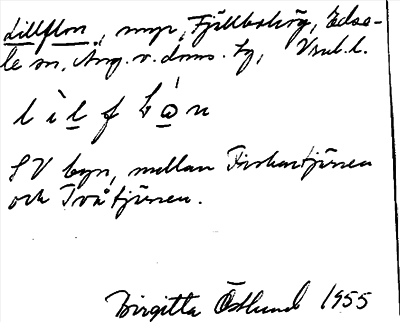 Lillflon, myr, Fjällbohög, Edse-
le sn, Ång. v. doms. tg, Vnl. l.
lìlflòn
SV byn, mellan Fiskartjärnen
och Tvåtjärnen.
Birgitta Östlund 1955